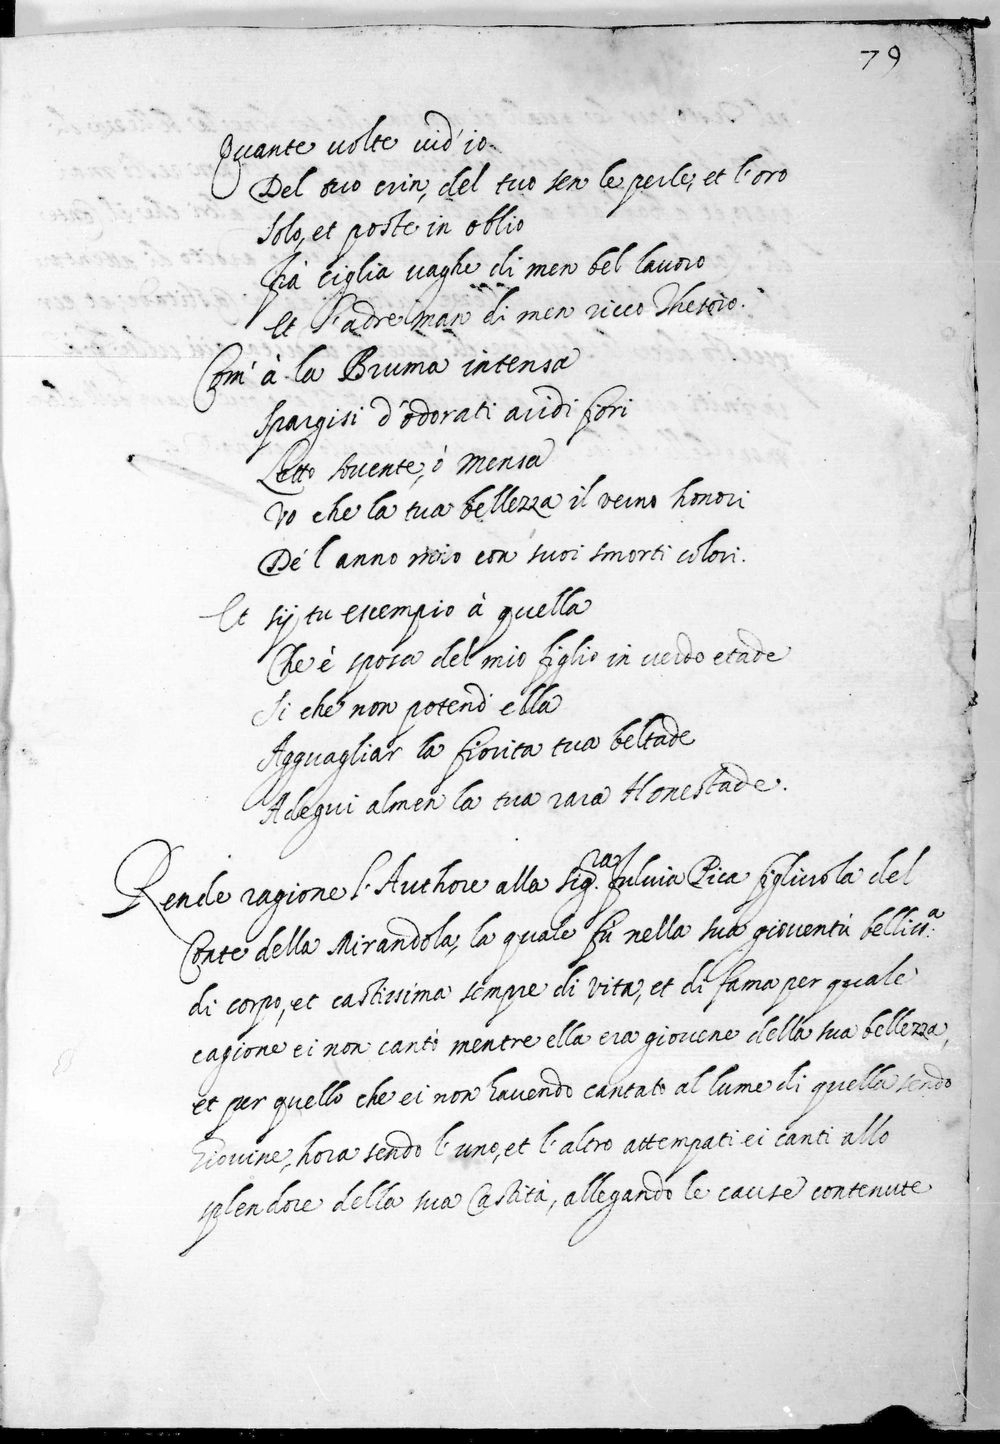 79
Quante uolte uid'io
Del tuo crin, del tuo sen le perle, et l'oro
Solo, et poste in oblio
Frà ciglia uaghe di men bel lauoro
Et l'adre man di men ricco Thesoro.
Com' à la Bruma intensa
Spargisi d'odorati aridi fiori
Letto souente, ò mensa
Vo che la tua bellezza il verno honori
De l'anno mio con suoi smorti colori.
Et sij tu essempio à quella
Che è sposa del mio figlio in uerde etade
Si che non potend' ella
Agguagliar la fiorita tua beltade
Adegui almen la tua rara Honestade.
Rende ragione l'Authore alla Sig.ra Fuluia Pica figliuola del
Conte della Mirandola, la quale fù nella sua giouentù belliss.a
di corpo, et castissima sempre di vita, et di fama per quale
cagione ei non cantò mentre ella era giouene della sua bellezza,
et per quello che ei non hauendo cantato al lume di quella sendo
Giouine, hora sendo l'uno, et l'altro attempati ei canti allo
splendore della sua Castità, allegando le cause contenute